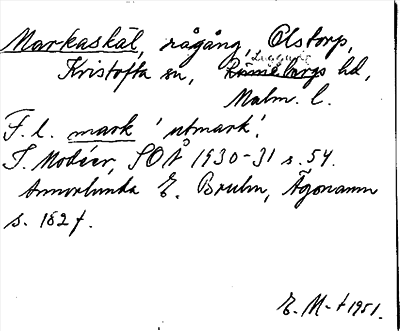 Markaskäl, rågång, Olstorp,
Kristofta sn, Luggude hd,
Malm. l.
F. l. mark 'utmark'.
I. Modéer, SOÅ 1930-31 s. 54.
Annorlunda E. Bruhn, Ägonamn
s. 182 f.
E. M-t 1951.